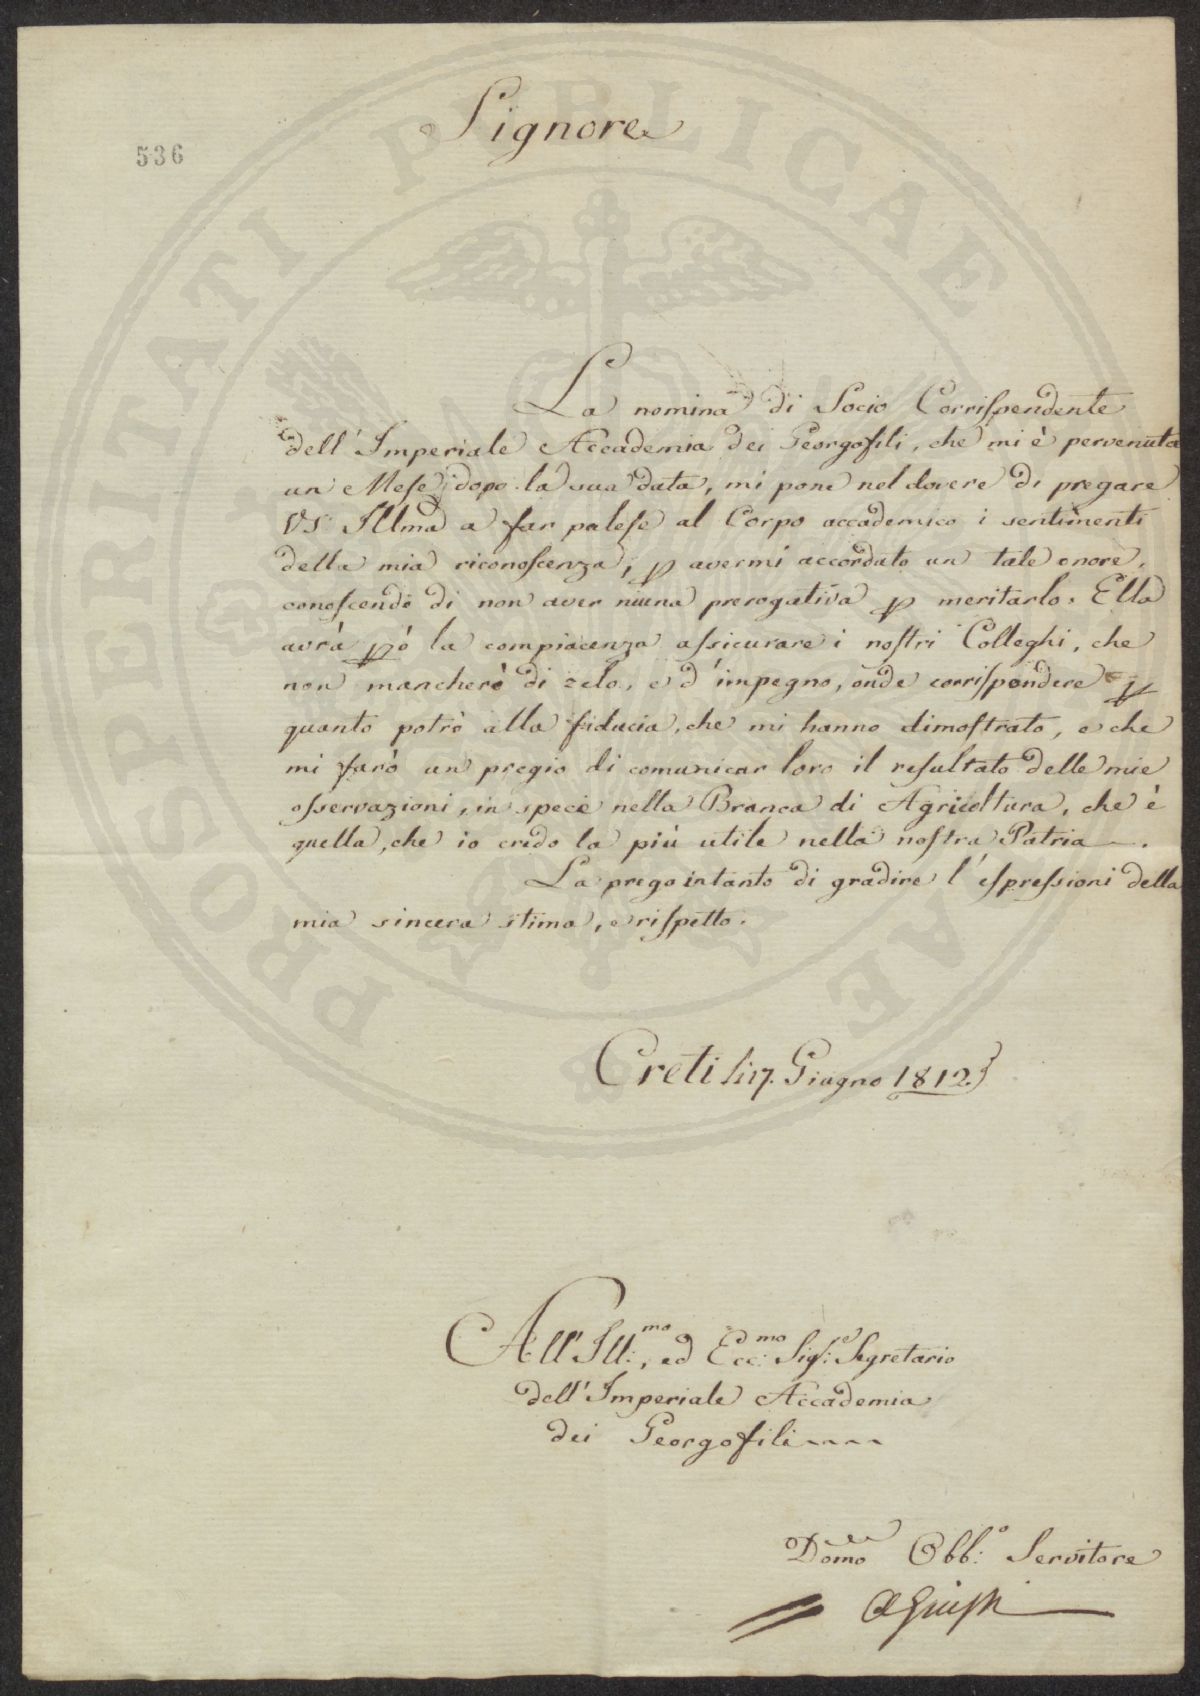 Signore
536
La nomina di Socio Corrispendente
dell' Imperiale Accademia dei Georgofili, che mi è pervenuta
un Mese dopo la sua data, mi pone nel dovere di pregare
VS Illma a far palese al Corpo accademico i sentimenti
della mia riconoscenza, p avermi accordato un tale onore,
conoscendo di non aver niuna prerogativa p meritarlo. Ella
avrà pò la compiacenza assicurare i nostri Colleghi, che
non mancherò di zelo, e d'impegno, onde corrispondere p
quanto potrò alla fiducia, che mi hanno dimostrato, e che
mi farò un pregio di comunicar loro il resultato delle mie
osservazioni, in specie nella Branca di Agricoltura, che è
quella, che io credo la più utile nella nostra Patria.
La prego intanto di gradire l'espressioni della
mia sincera stima, e rispetto.
Creti li 17. Giugno 1812.
All' Ill:mo, ed Ecc:mo Sigr: Segretario
dell' Imperiale Accademia
dei Georgofili
Domo Obb:o Servitore
PROSPERITATI PUBLICAE AUGENDAE